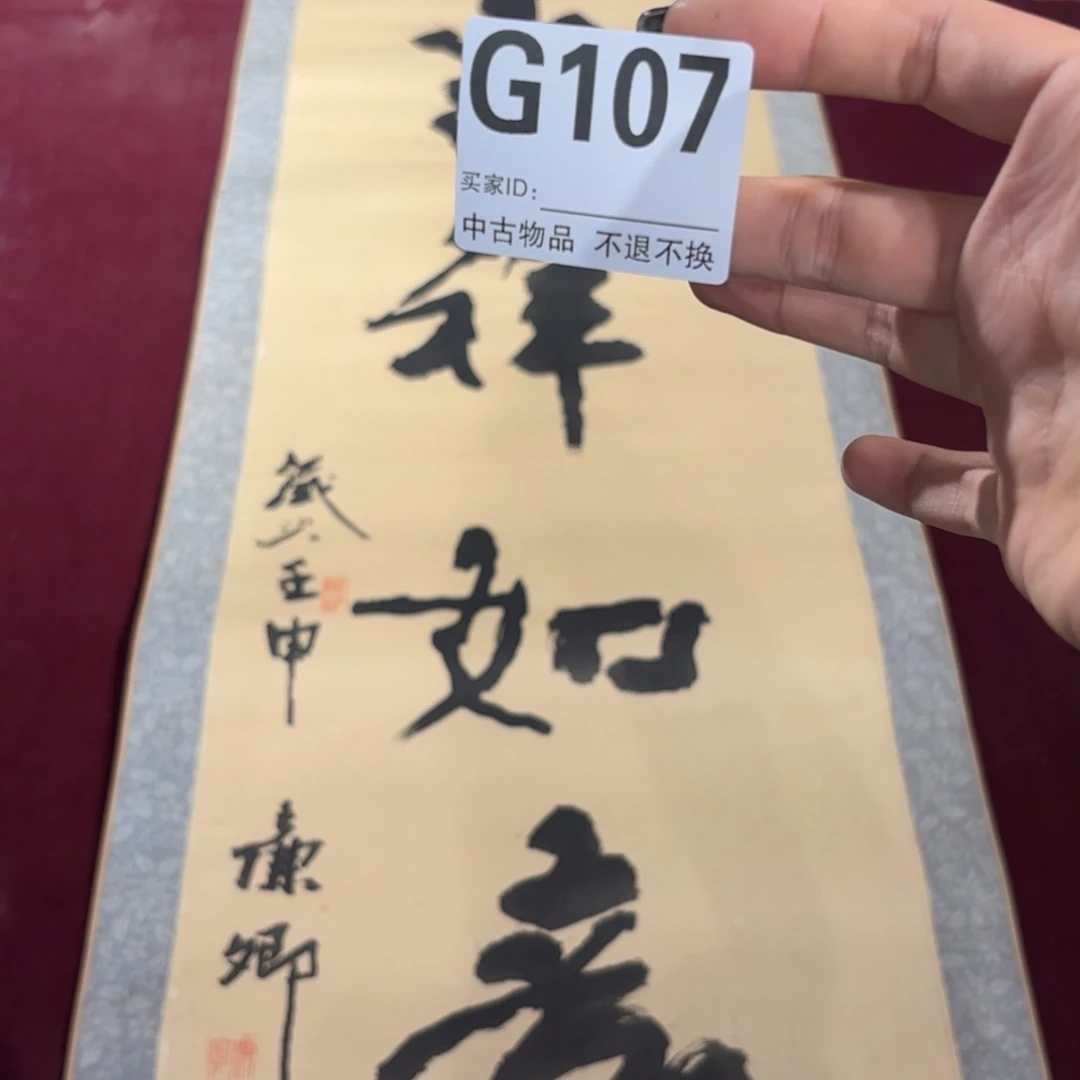 G107
买家ID:
中古物品 不退不换
祥
如
意
歲次壬申
康卿